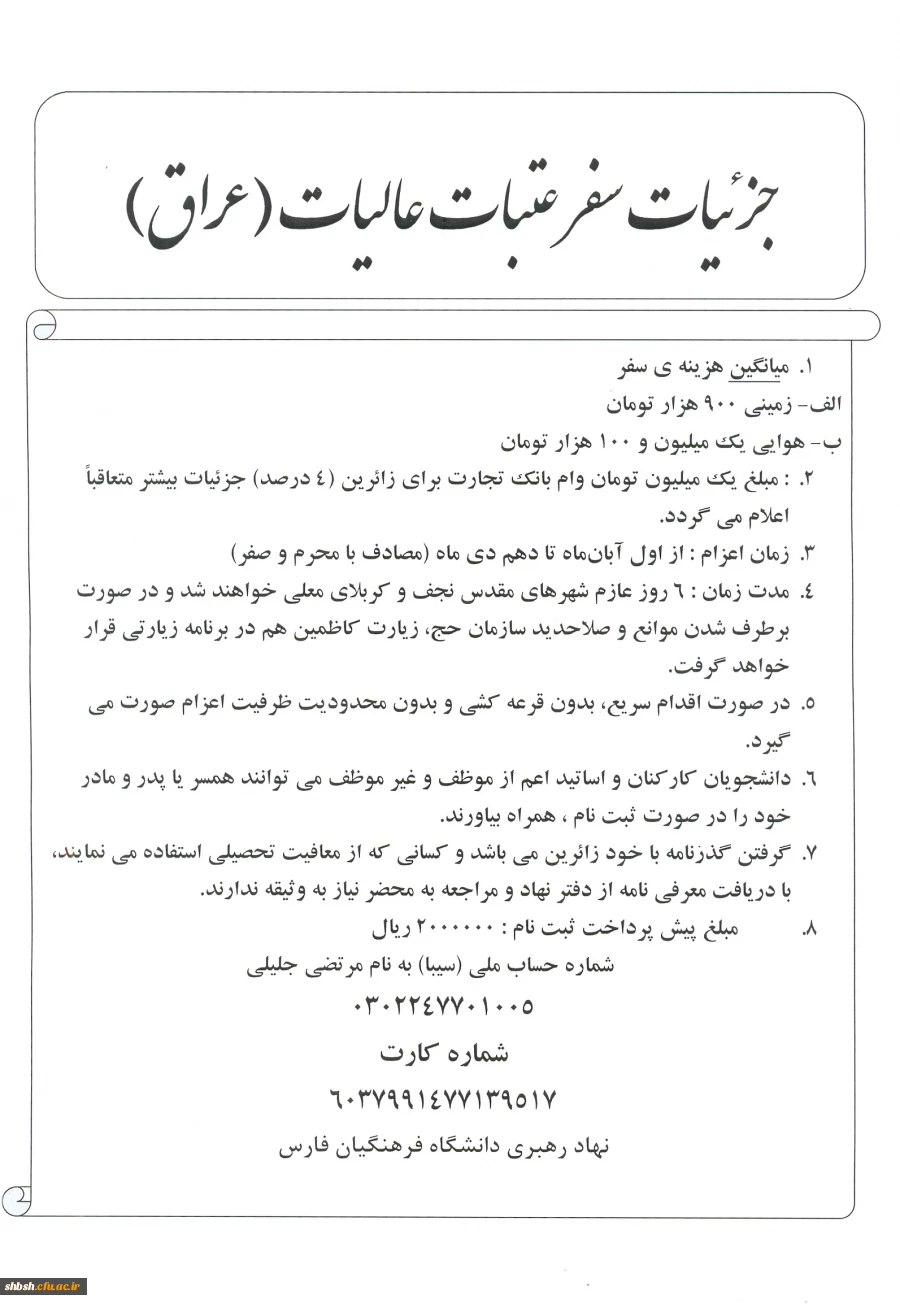 جزئیات سفر عتبات عالیات (عراق)
۱. میانگین هزینه ی سفر
الف- زمینی ۹۰۰ هزار تومان
ب- هوایی یک میلیون و ۱۰۰ هزار تومان
۲. : مبلغ یک میلیون تومان وام بانک تجارت برای زائرین (٤ درصد) جزئیات بیشتر متعاقباً
اعلام می گردد.
۳. زمان اعزام : از اول آبان‌ماه تا دهم دی ماه (مصادف با محرم و صفر)
٤. مدت زمان : ٦ روز عازم شهرهای مقدس نجف و کربلای معلی خواهند شد و در صورت
برطرف شدن موانع و صلاحدید سازمان حج، زیارت کاظمین هم در برنامه زیارتی قرار
خواهد گرفت.
۵. در صورت اقدام سریع، بدون قرعه کشی و بدون محدودیت ظرفیت اعزام صورت می
گیرد.
٦. دانشجویان کارکنان و اساتید اعم از موظف و غیر موظف می توانند همسر یا پدر و مادر
خود را در صورت ثبت نام ، همراه بیاورند.
۷. گرفتن گذرنامه با خود زائرین می باشد و کسانی که از معافیت تحصیلی استفاده می نمایند،
با دریافت معرفی نامه از دفتر نهاد و مراجعه به محضر نیاز به وثیقه ندارند.
۸. مبلغ پیش پرداخت ثبت نام : ۲۰۰۰۰۰۰ ریال
شماره حساب ملی (سیبا) به نام مرتضی جلیلی
۰۳۰۲۲٤۷۷۰۱۰۰۵
شماره کارت
٦۰۳۷۹۹۱٤۷۷۱۳۹۵۱۷
نهاد رهبری دانشگاه فرهنگیان فارس
shbsh.cfu.ac.ir